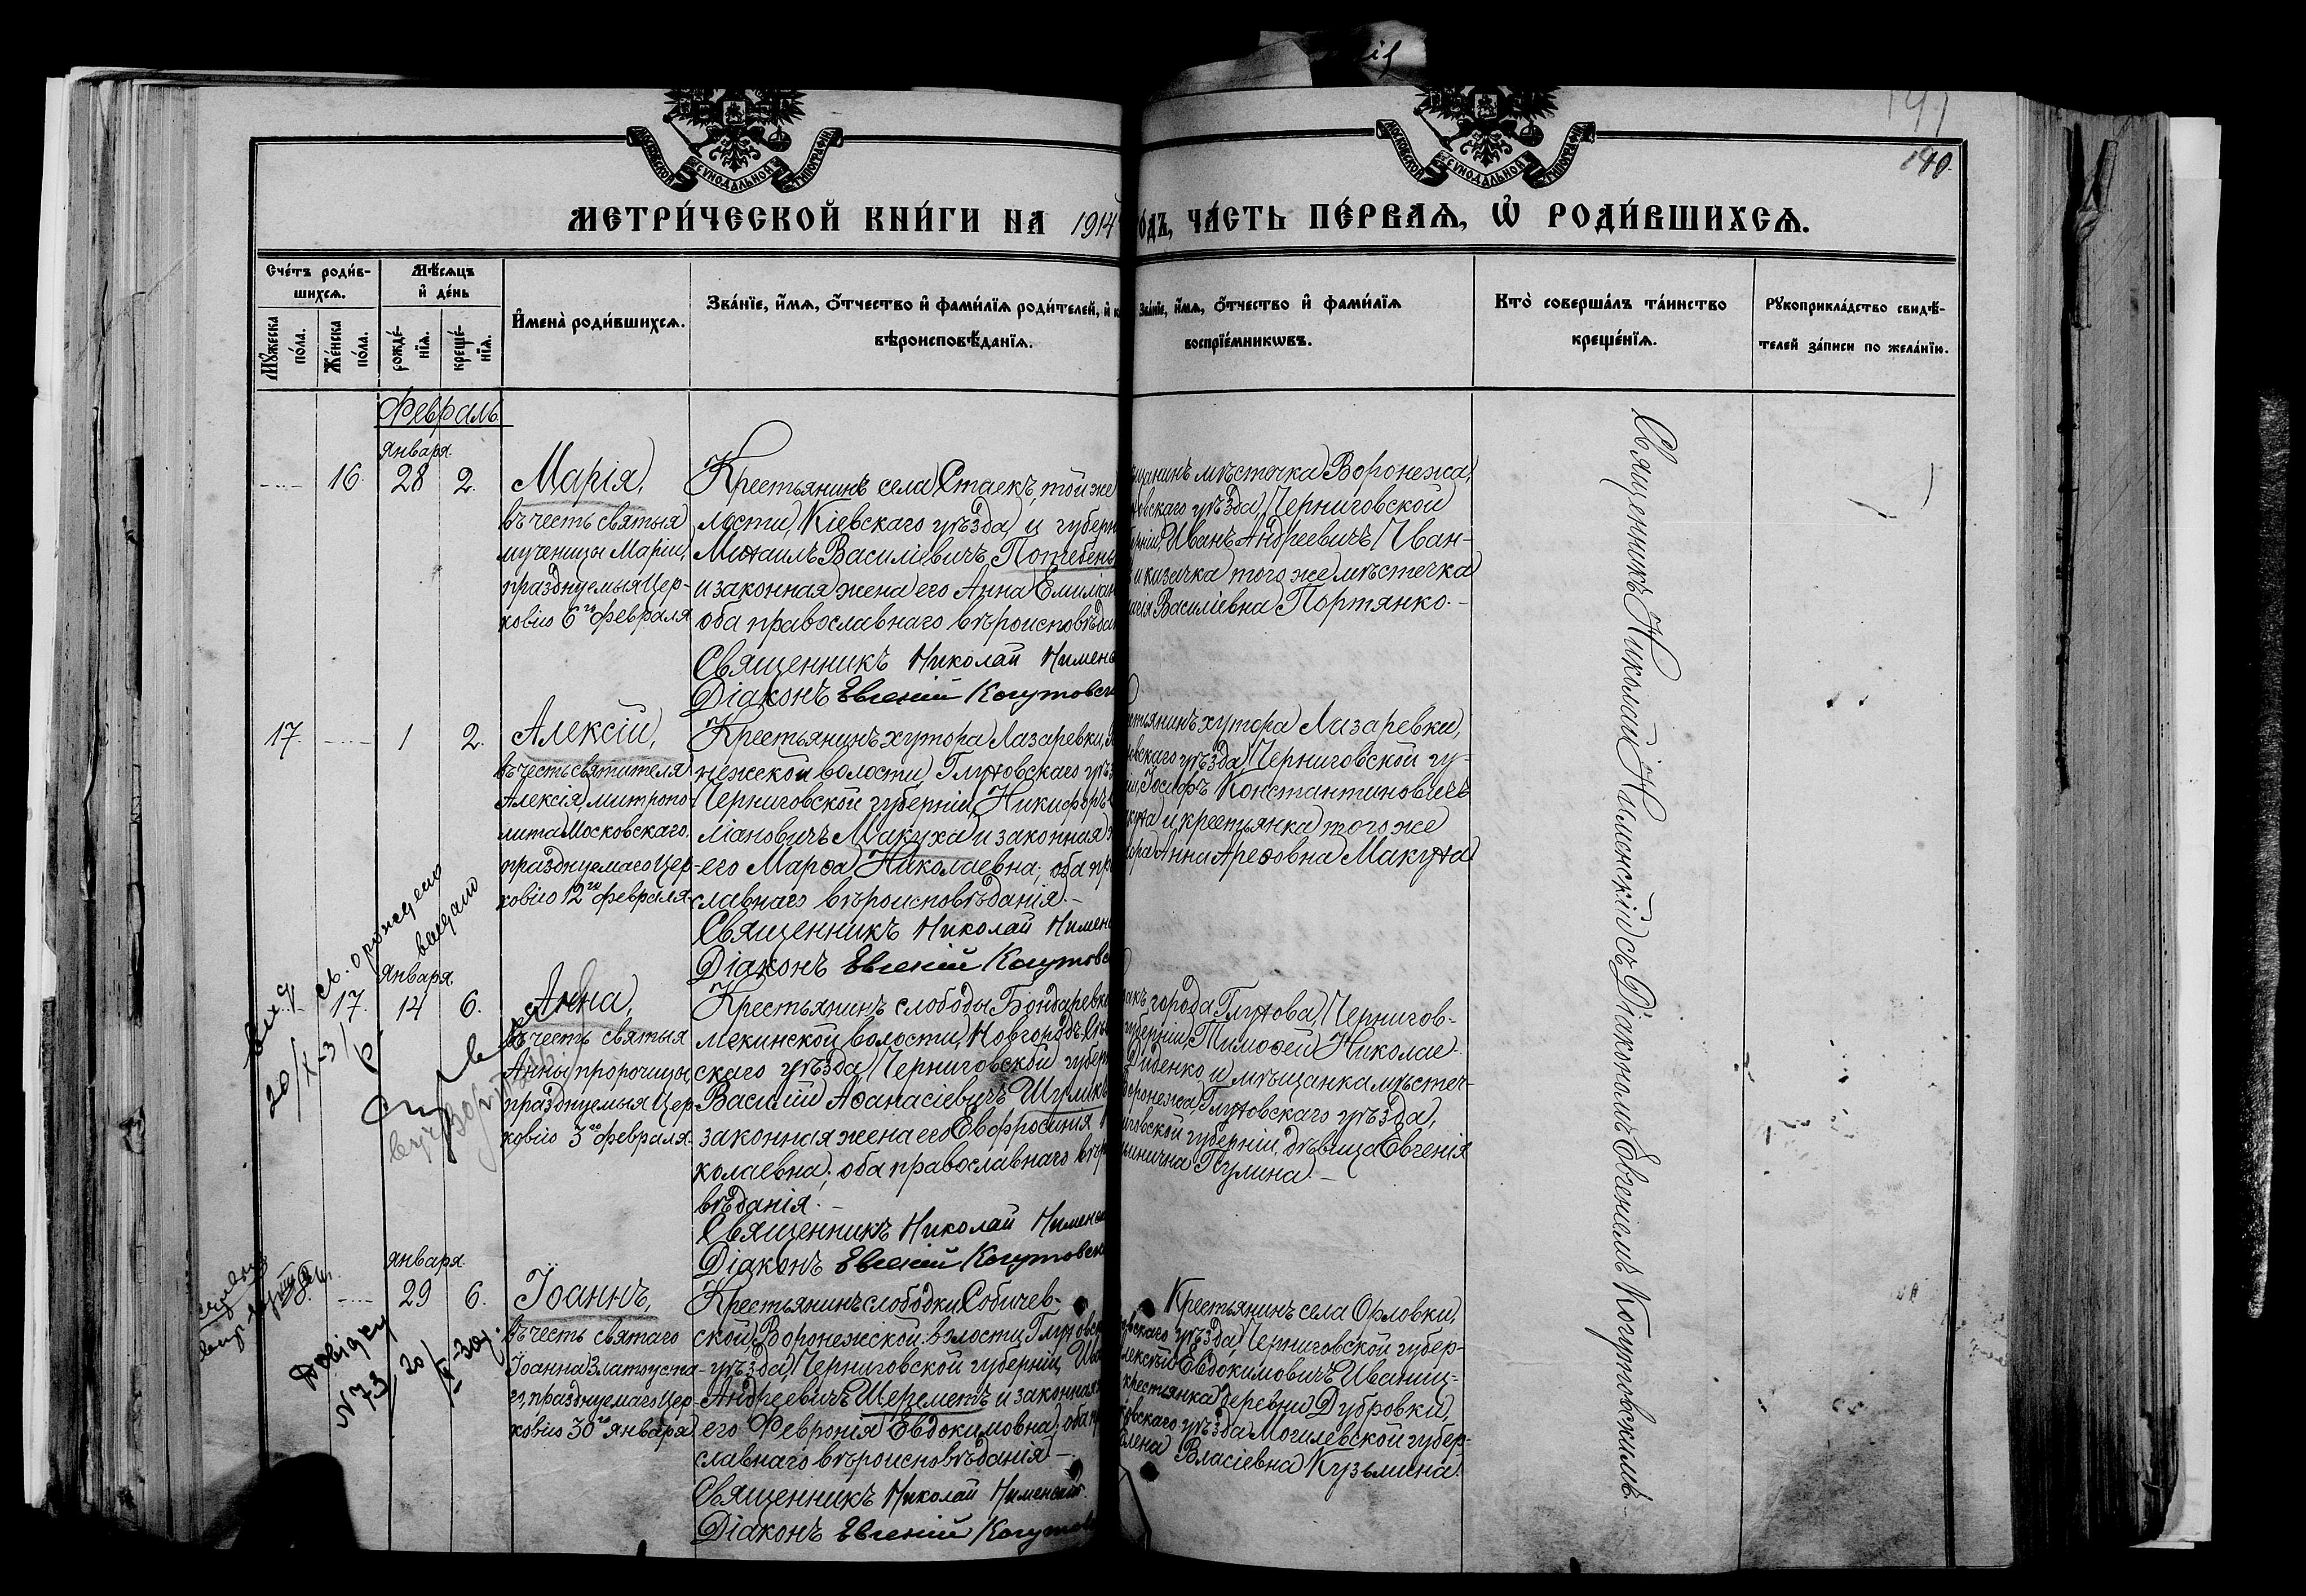 141
140.
МОСКОВСКОЙ СѴНОДАЛЬНОЙ ТИПОГРАФІИ
МОСКОВСКОЙ СѴНОДАЛЬНОЙ ТИПОГРАФІИ
МЕТРИ́ЧЕСКОЙ КНИ́ГИ НА 1914
ОДЪ, ЧА́СТЬ ПЕ́РВАѦ, Ѡ РОДИ́ВШИХСѦ.
Сче́тъ роди́в-
шихсѧ.
Мꙋ́жеска
по́ла.
Же́нска
по́ла.
Мѣ́сѧцъ
и҆ де́нь
рожде́-
нїѧ.
креще́-
нїѧ.
И҆мена̀ роди́вшихсѧ.
Зва́нїе, и҆́мѧ, ѻ҆́тчество и҆ фами́лїѧ роди́телей, и҆ к
вѣроисповѣ́данїѧ.
Зва́нїе, и҆́мѧ, ѻ҆́тчество и҆ фами́лїѧ
воспрїе́мникѡвъ.
Кто̀ соверша́лъ та́инство
креще́нїѧ.
Рꙋкоприкла́дство свидѣ́-
телей за́писи по жела́нїю.
Февраль
января
16. 28 2.
Марія,
въ честь святыя
мученицы Маріи,
празднуемыя Цер-
ковію 6го февраля
Крестьянинъ села Стаекъ, той же
лости, Кіевскаго уѣзда и губерн
Михаилъ Василіевичъ Потебень
и законная жена его Анна Емиліан
оба православнаго вѣроисповѣдан
Священникъ Николай Нименс
Діаконъ Евгеній Когутовск
щанинъ мѣстечка Воронежа,
ховскаго уѣзда, Черниговской
ерніи, Иванъ Андреевичъ Иван-
и казачка того же мѣстечка
Василіевна Портянко.-
17. 1 2.
Алексій,
въ честь святителя
Алексія, митропо-
лита Московскаго,
празднуемаго Цер-
ковію 12го февраля
Крестьянинъ хутора Лазаревки,
нежской волости, Глуховскаго уѣз
Черниговской губерніи, Никифоръ
ліановичъ Макуха и законная
его Марѳа Николаевна; оба пр
славнаго вѣроисповѣданія.-
Священникъ Николай Нимен
Діаконъ Евгеній Когутовс
стьянинъ хутора Лазаревки,
овскаго уѣзда, Черниговской гу-
іи, Іосифъ Константиновичъ
куха и крестьянка того же
ора Анна Ареѳовна Макуха
января
17. 14 6.
Анна,
въ честь святыя
Анны пророчицы,
празднуемыя Цер-
ковію 3го февраля.
Крестьянинъ слободы Бондаревки
мекинской волости, Новгородъ-Сѣв
скаго уѣзда, Черниговской губерн
Василій Аѳанасіевичъ Шумик
законная жена его Евфросинія Н
колаевна; оба православнаго вѣр
вѣданія.-
Священникъ Николай Нименс
Діаконъ Евгеній Когутовск
акъ города Глухова, Чернигов-
губерніи, Тимоѳей Николае-
Диденко и мѣщанка мѣстеч-
Воронежа, Глуховскаго уѣзда,
иговской губерніи, дѣвица Евгенія
Пулина.-
января
29 6.
Іоаннъ,
въ честь святаго
Іоанна Златоуста-
го, празднуемаго Цер-
ковію 30го января
Крестьянинъ слободки Собичев-
ской, Воронежской волости, Глуховск
уѣзда, Черниговской губерніи, Ив
Андреевичъ Шереметъ и законная
его Февронія Евдокимовна; оба пр
славнаго вѣроисповѣданія-
Священникъ Николай Нименскій
Діаконъ Евгеній Когутов
Крестьянинъ села Орловки,
овскаго уѣзда, Черниговской губер-
лексѣй Евдокимовичъ Иваниц-
крестьянка деревни Дубровки
овскаго уѣзда Могилевской губер-
лена Власіевна Кузьмина.
Священникъ Николай Нименскій съ Діакономъ Евгеніемъ Когутовскимъ.-